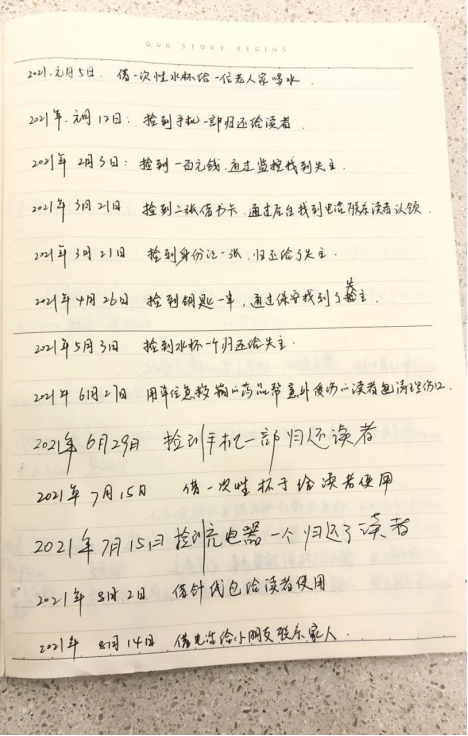 OUR STORY BEGINS
2021.元月5日. 借一次性水杯给一位老人家喝水.
2021年.元月12日: 捡到手机一部归还给读者.
2021年 2月3日: 捡到一百元钱.通过监控找到失主.
2021年 3月21日 捡到二张借书卡.通过后台找到电话联系读者认领.
2021年 3月21日 捡到身份证一张,归还给了失主.
2021年 4月26日 捡到钥匙一串,通过保安找到了失主.
2021年5月3日 捡到水杯一个归还给失主.
2021年 6月27日 用单位急救箱的药品帮意外受伤的读者包清理伤口.
2021年 6月29日 捡到手机一部归还读者
2021年 7月15日 借一次性杯子给读者使用
2021年7月15日 捡到充电器一个归还了读者
2021年 8月2日 借针线包给读者使用
2021年 8月14日 借电话给小朋友联系家人.